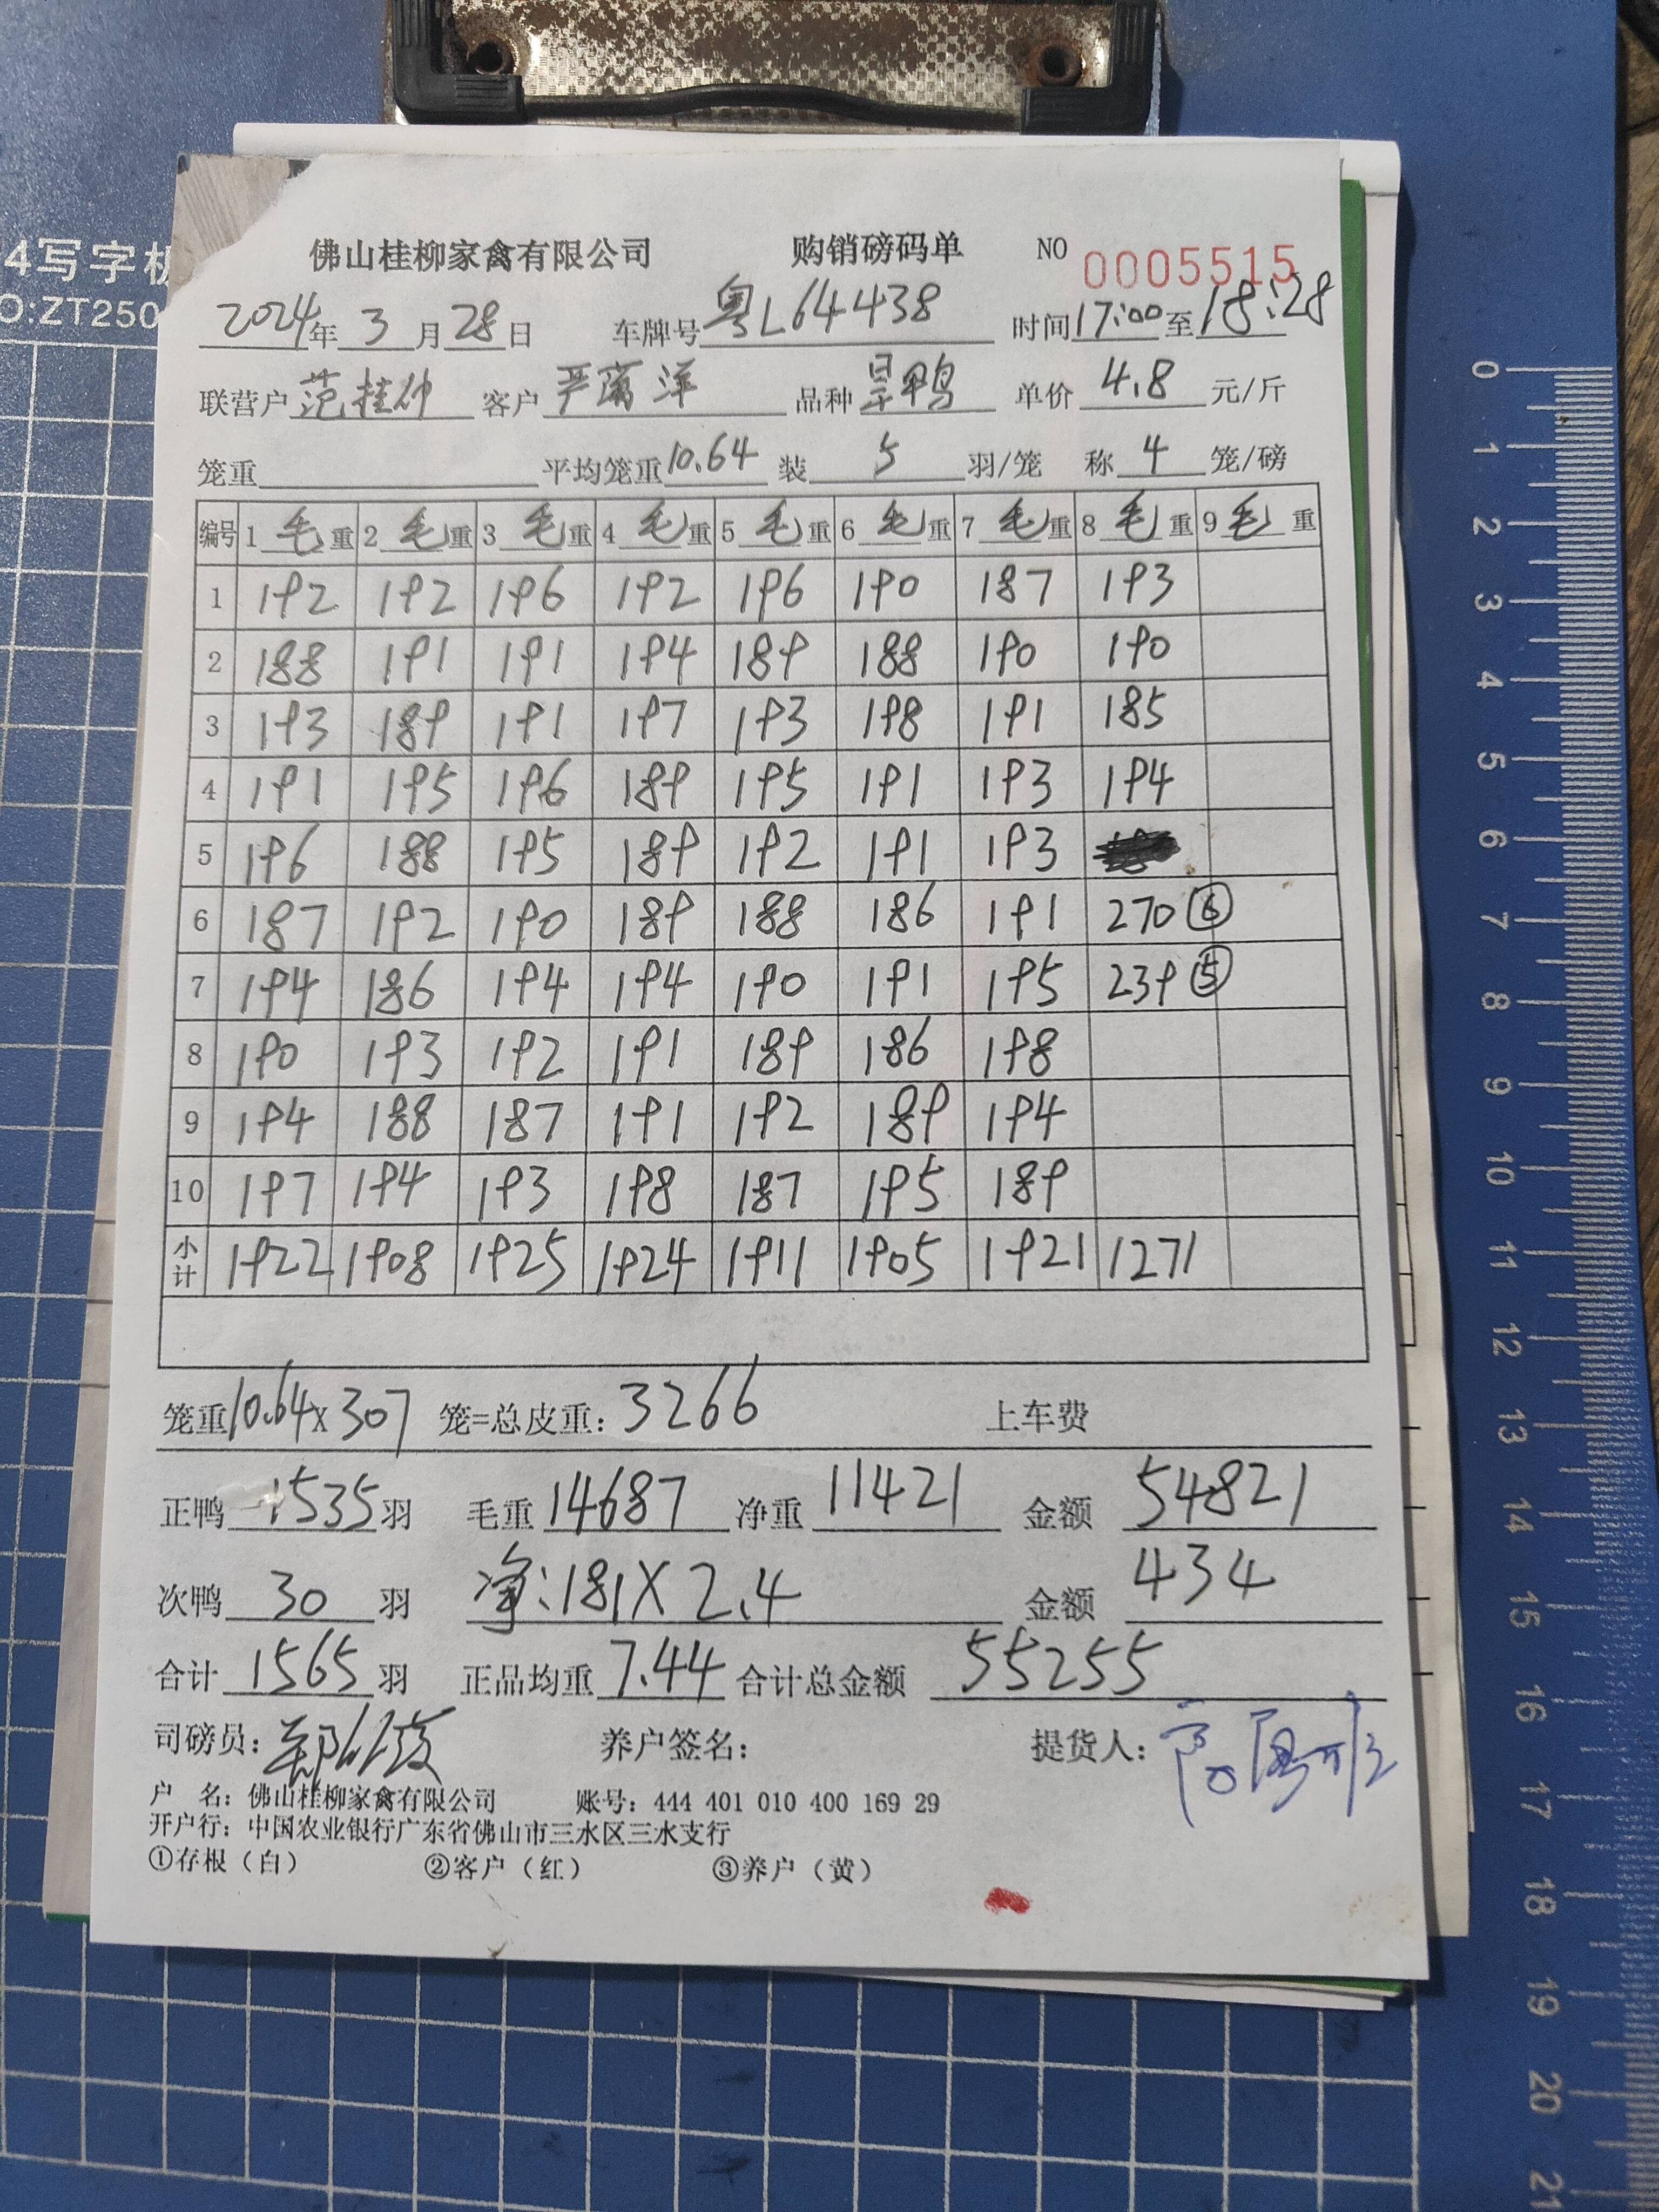 4写字板
NO:ZT250
佛山桂柳家禽有限公司 购销磅码单 NO 0005515
2024年3月28日 车牌号粤L64438 时间17:00至18:28
联营户 范桂仲 客户 严 洋 品种 旱鸭 单价 4.8 元/斤
笼重 平均笼重10.64 装 5 羽/笼 称 4 笼/磅
编号 1毛重 2毛重 3毛重 4毛重 5毛重 6毛重 7毛重 8毛重 9毛重
1 192 192 196 192 196 190 187 193
2 188 191 191 194 189 188 190 190
3 193 189 191 197 193 198 191 185
4 191 195 196 189 195 191 193 194
5 196 188 195 189 192 191 193
6 187 192 190 189 188 186 191 270⑥
7 194 186 194 194 190 191 195 239⑤
8 190 193 192 191 189 186 198
9 194 188 187 191 192 189 194
10 197 194 193 198 187 195 189
小计 1922 1908 1925 1924 1911 1905 1921 1271
笼重10.64×307 笼=总皮重：3266 上车费
正鸭 1535羽 毛重 14687 净重 11421 金额 54821
次鸭 30 羽 净:181×2.4 金额 434
合计 1565 羽 正品均重 7.44 合计总金额 55255
司磅员： 养户签名： 提货人：
户 名：佛山桂柳家禽有限公司 账号：444 401 010 400 169 29
开户行：中国农业银行广东省佛山市三水区三水支行
①存根（白） ②客户（红） ③养户（黄）
0
1
2
3
4
5
6
7
8
9
10
11
12
13
14
15
16
17
18
19
20
21